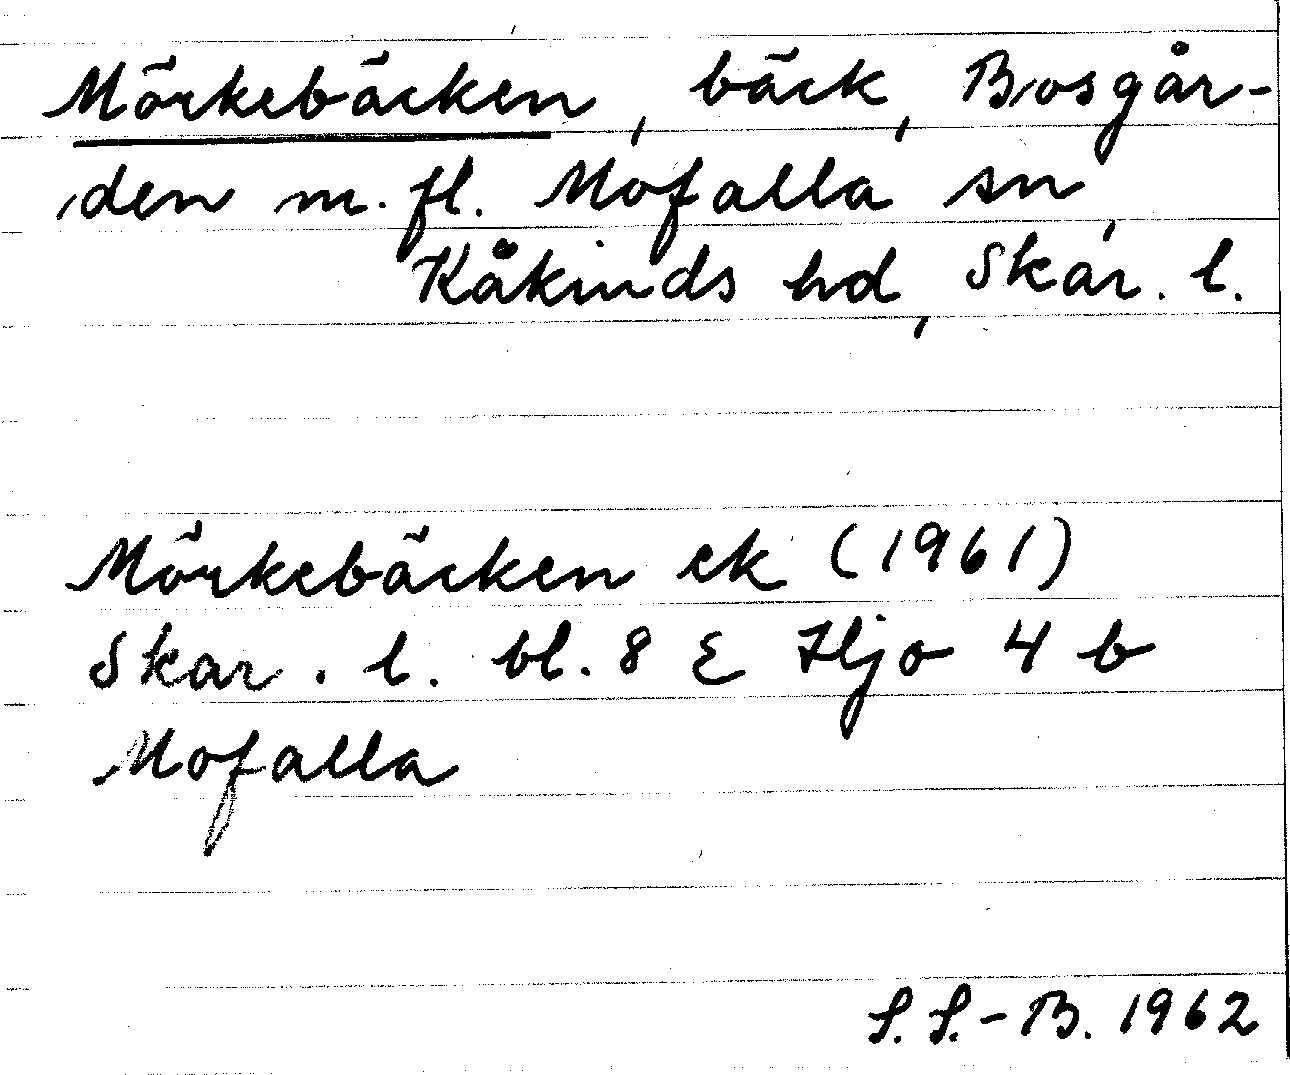 Mörkebäcken, bäck, Bosgår-
den m. fl. Mofalla sn,
Kåkinds hd, Skar. l.
Mörkebäcken ek (1961)
Skar. l. bl. 8 E Hjo 4 b
Mofalla
S. S.-B. 1962